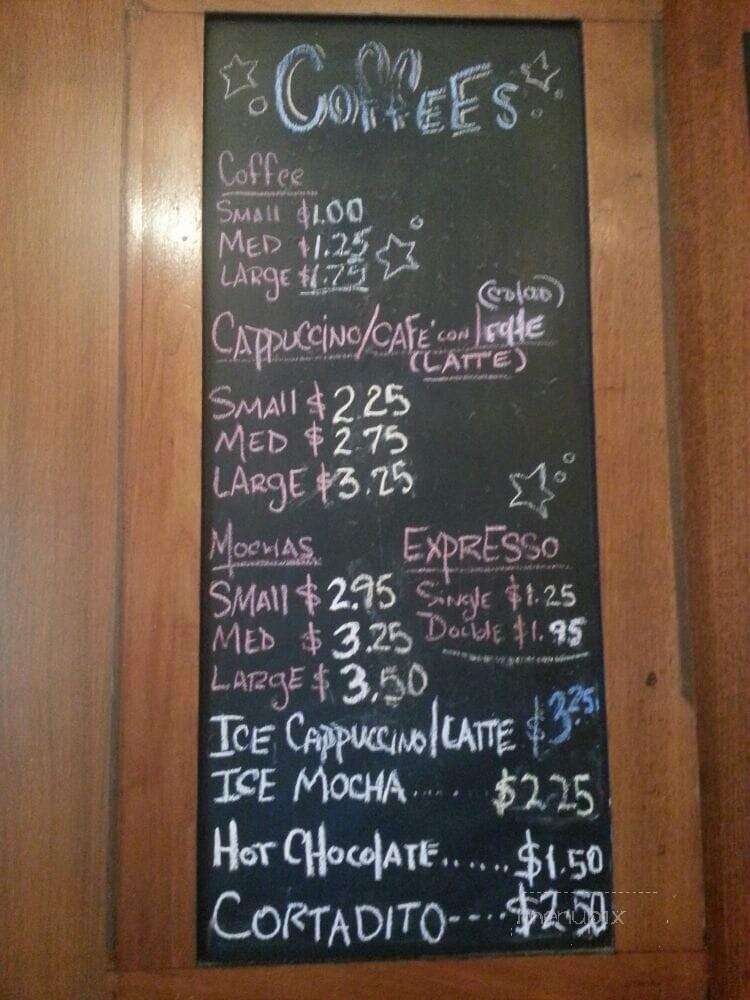 CoffeEs
Coffee
Small $1.00
MED $1.25
LArgE $1.75
(colao)
CAppuccino/CAFE con leche
(LATTE)
Small $2.25
MED $2.75
LArgE $3.25
Mochas
Small $2.95
MED $3.25
LArgE $3.50
EXprESSO
Single $1.25
Double $1.95
ICE CAppuccino/LATTE $3.25
ICE MOCHA...... $2.25
HoT CHocolATE...... $1.50
CORTADITO---- $2.50
menubix